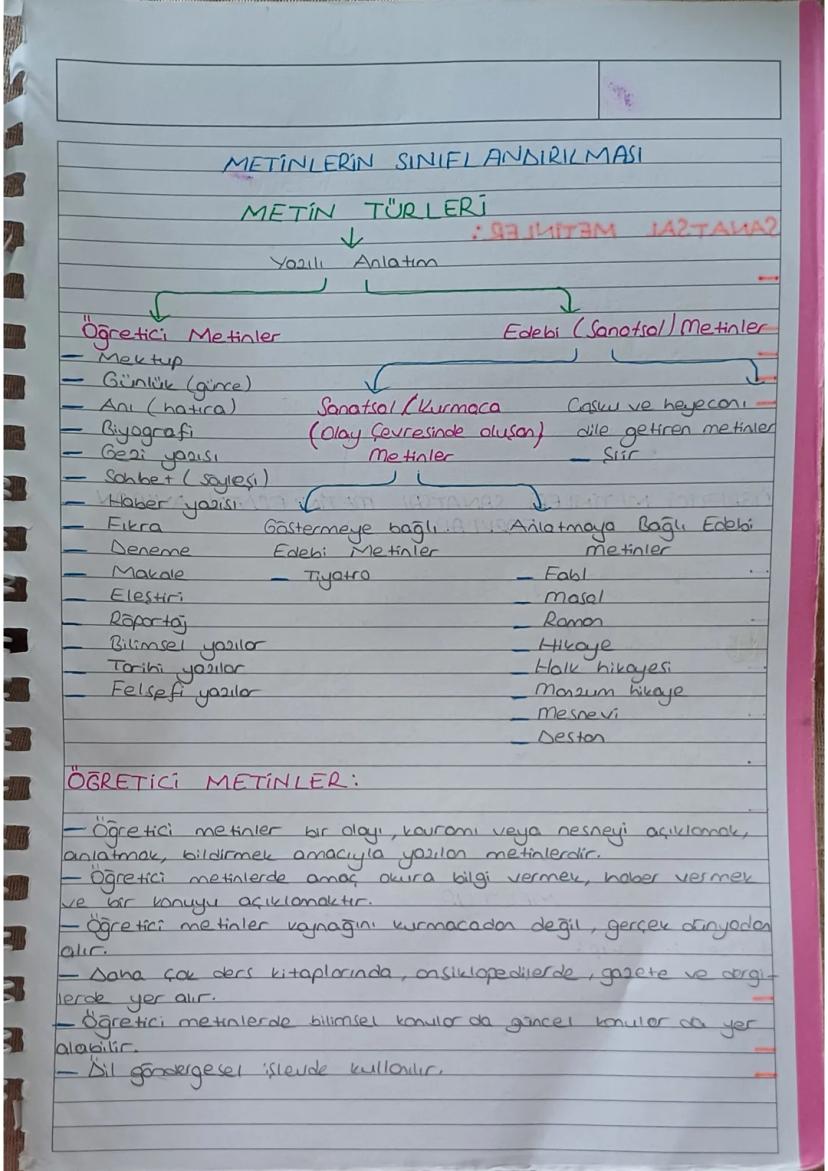 METİNLERİN SINIFLANDIRILMASI
METİN TÜRLERİ
SANATSAL METİNLER:
Yazılı Anlatım
Öğretici Metinler
Edebi (Sanatsal) Metinler
— Mektup
— Günlük (günce)
— Anı (hatıra)
— Biyografi
— Gezi yazısı
— Sohbet (söyleşi)
— Haber yazısı
— Fıkra
— Deneme
— Makale
— Eleştiri
— Röportaj
— Bilimsel yazılar
— Tarihi yazılar
— Felsefi yazılar
Sanatsal / Kurmaca
(Olay Çevresinde oluşan)
Metinler
Coşku ve heyecanı
dile getiren metinler
— Şiir
Göstermeye bağlı
Edebi Metinler
— Tiyatro
Anlatmaya Bağlı Edebi
metinler
— Fabl
— Masal
— Roman
— Hikaye
— Halk hikayesi
— Manzum hikaye
— Mesnevi
— Destan
ÖĞRETİCİ METİNLER:
— Öğretici metinler bir olayı, kavramı veya nesneyi açıklamak,
anlatmak, bildirmek amacıyla yazılan metinlerdir.
— Öğretici metinlerde amaç okura bilgi vermek, haber vermek
ve bir konuyu açıklamaktır.
— Öğretici metinler kaynağını kurmacadan değil, gerçek dünyadan
alır.
— Daha çok ders kitaplarında, ansiklopedilerde, gazete ve dergi-
lerde yer alır.
— Öğretici metinlerde bilimsel konular da güncel konular da yer
alabilir.
— Dil göndergesel işlevde kullanılır.